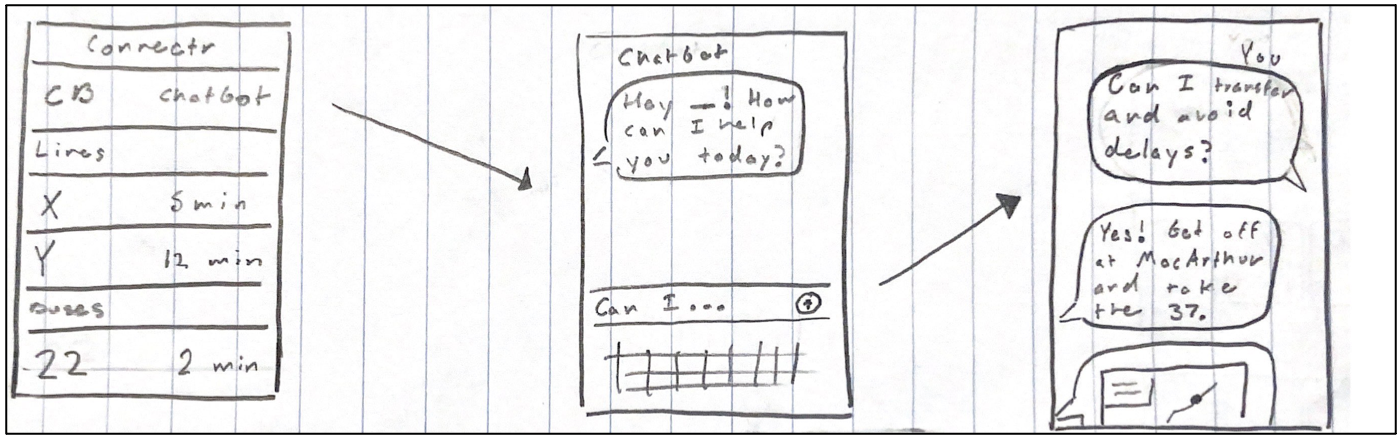 Connectr
CB chatbot
Lines
X 5 min
Y 12 min
Buses
22 2 min
Chatbot
Hey _! How
can I help
you today?
Can I...
You
Can I transfer
and avoid
delays?
Yes! Get off
at MacArthur
and take
the 37.